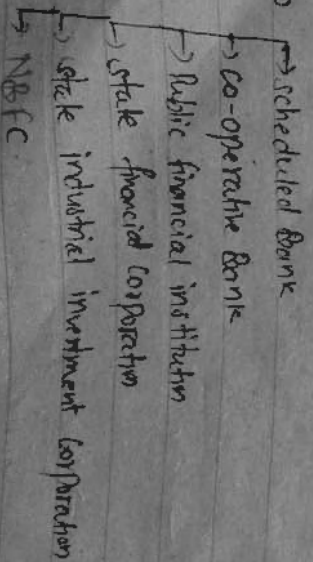 → scheduled Bank
→ co-operative Bank
→ Public financial institution
→ state financial Corporation
→ state industrial investment Corporation
→ NBFC